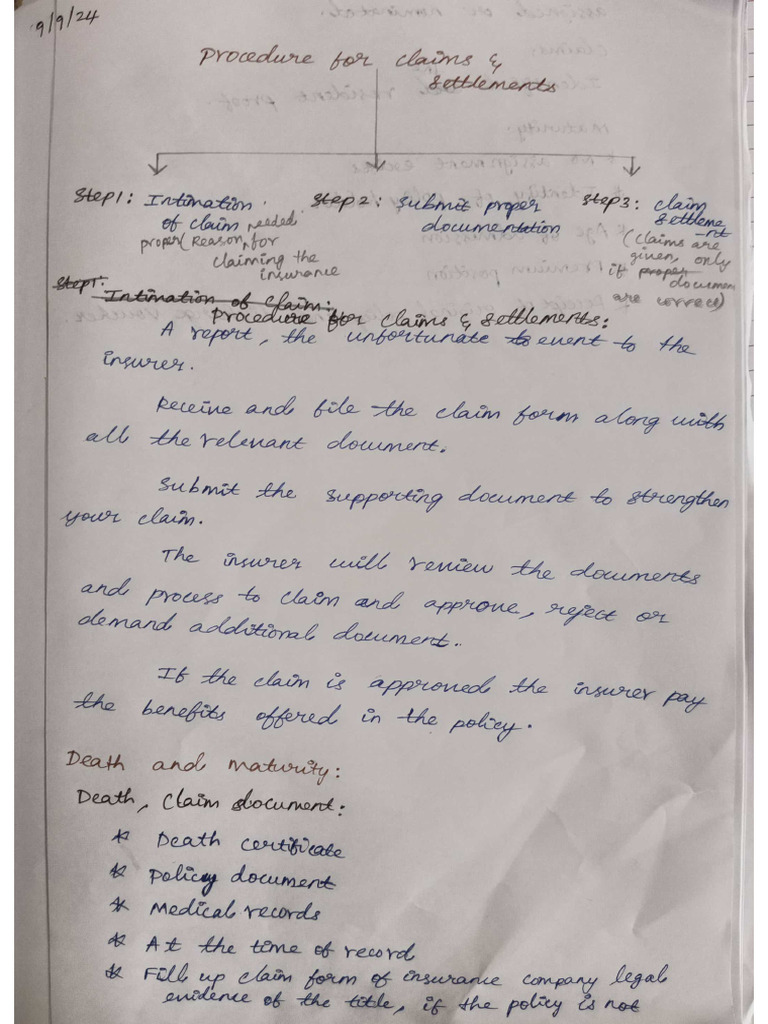 9/9/24
Procedure for claims &
settlements
Step 1: Intimation
of claim needed
proper (Reason, for
claiming the
insurance
Step 2: submit proper
documentation
Step 3: claim
settleme
-nt
(claims are
given, only
if proper
documen
are correct)
Step 1:
Intimation of claim:
Procedure for claims & settlements:
A report, the unfortunate to event to the
insurer.
Receive and file the claim form along with
all the relevant document.
Submit the supporting document to strengthen
your claim.
The insurer will review the documents
and process to claim and approve, reject or
demand additional document.
If the claim is approved the insurer pay
the benefits offered in the policy.
Death and maturity:
Death, Claim document:
* Death certificate
* Policy document
* Medical records
* At the time of record
* Fill up claim form of insurance company legal
evidence of the title, if the policy is not